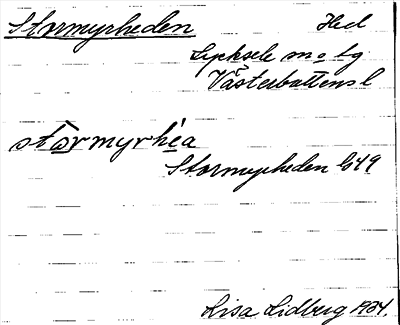 Stormyrheden Hed
Lycksele m o lg
Västerbottens l
stòrmyrhéa
Stormyrheden G49
Lisa Lidberg 1934.